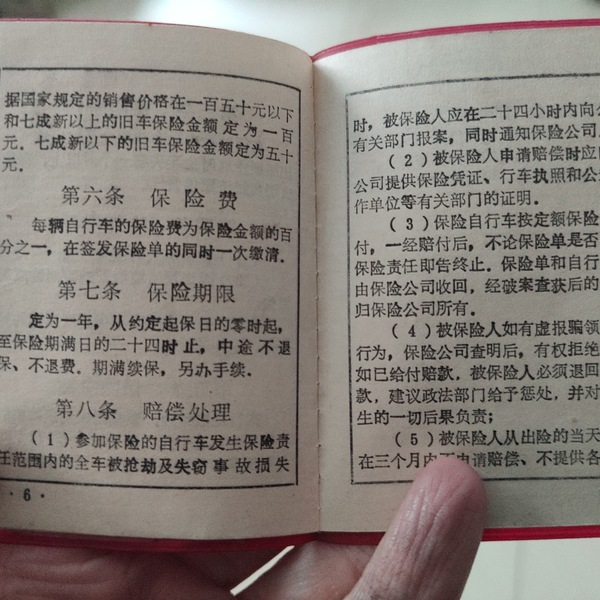 据国家规定的销售价格在一百五十元以下
和七成新以上的旧车保险金额定为一百
元．七成新以下的旧车保险金额定为五十
元．
第六条 保险费
每辆自行车的保险费为保险金额的百
分之一，在签发保险单的同时一次缴清．
第七条 保险期限
定为一年，从约定起保日的零时起，
至保险期满日的二十四时止，中途不退
保、不退费．期满续保，另办手续．
第八条 赔偿处理
（1）参加保险的自行车发生保险责
任范围内的全车被抢劫及失窃事故损失
·6·
时，被保险人应在二十四小时内向公
有关部门报案，同时通知保险公司．
（2）被保险人申请赔偿时应
公司提供保险凭证、行车执照和公
作单位等有关部门的证明．
（3）保险自行车按定额保险
付，一经赔付后，不论保险单是否
保险责任即告终止．保险单和自行
由保险公司收回，经破案查获后的
归保险公司所有．
（4）被保险人如有虚报骗领
行为，保险公司查明后，有权拒绝
如已给付赔款．被保险人必须退回
款，建议政法部门给予惩处，并对
生的一切后果负责；
（5）被保险人从出险的当天
在三个月内 申请赔偿、不提供各